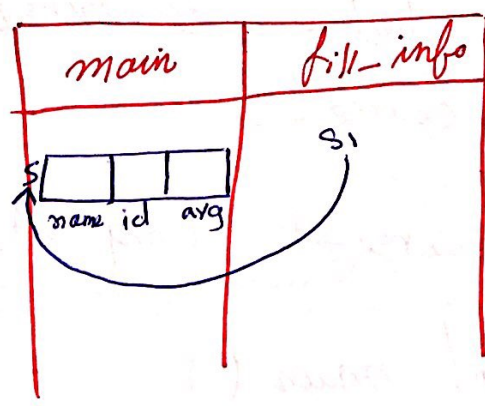 main fill_info
S S1
name id avg